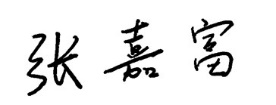 张嘉富